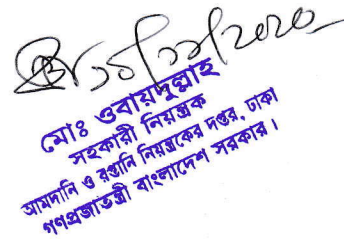 ১০/১১/২০২০
মোঃ ওবায়দুল্লাহ
সহকারী নিয়ন্ত্রক
আমদানি ও রপ্তানি নিয়ন্ত্রকের দপ্তর, ঢাকা
গণপ্রজাতন্ত্রী বাংলাদেশ সরকার।